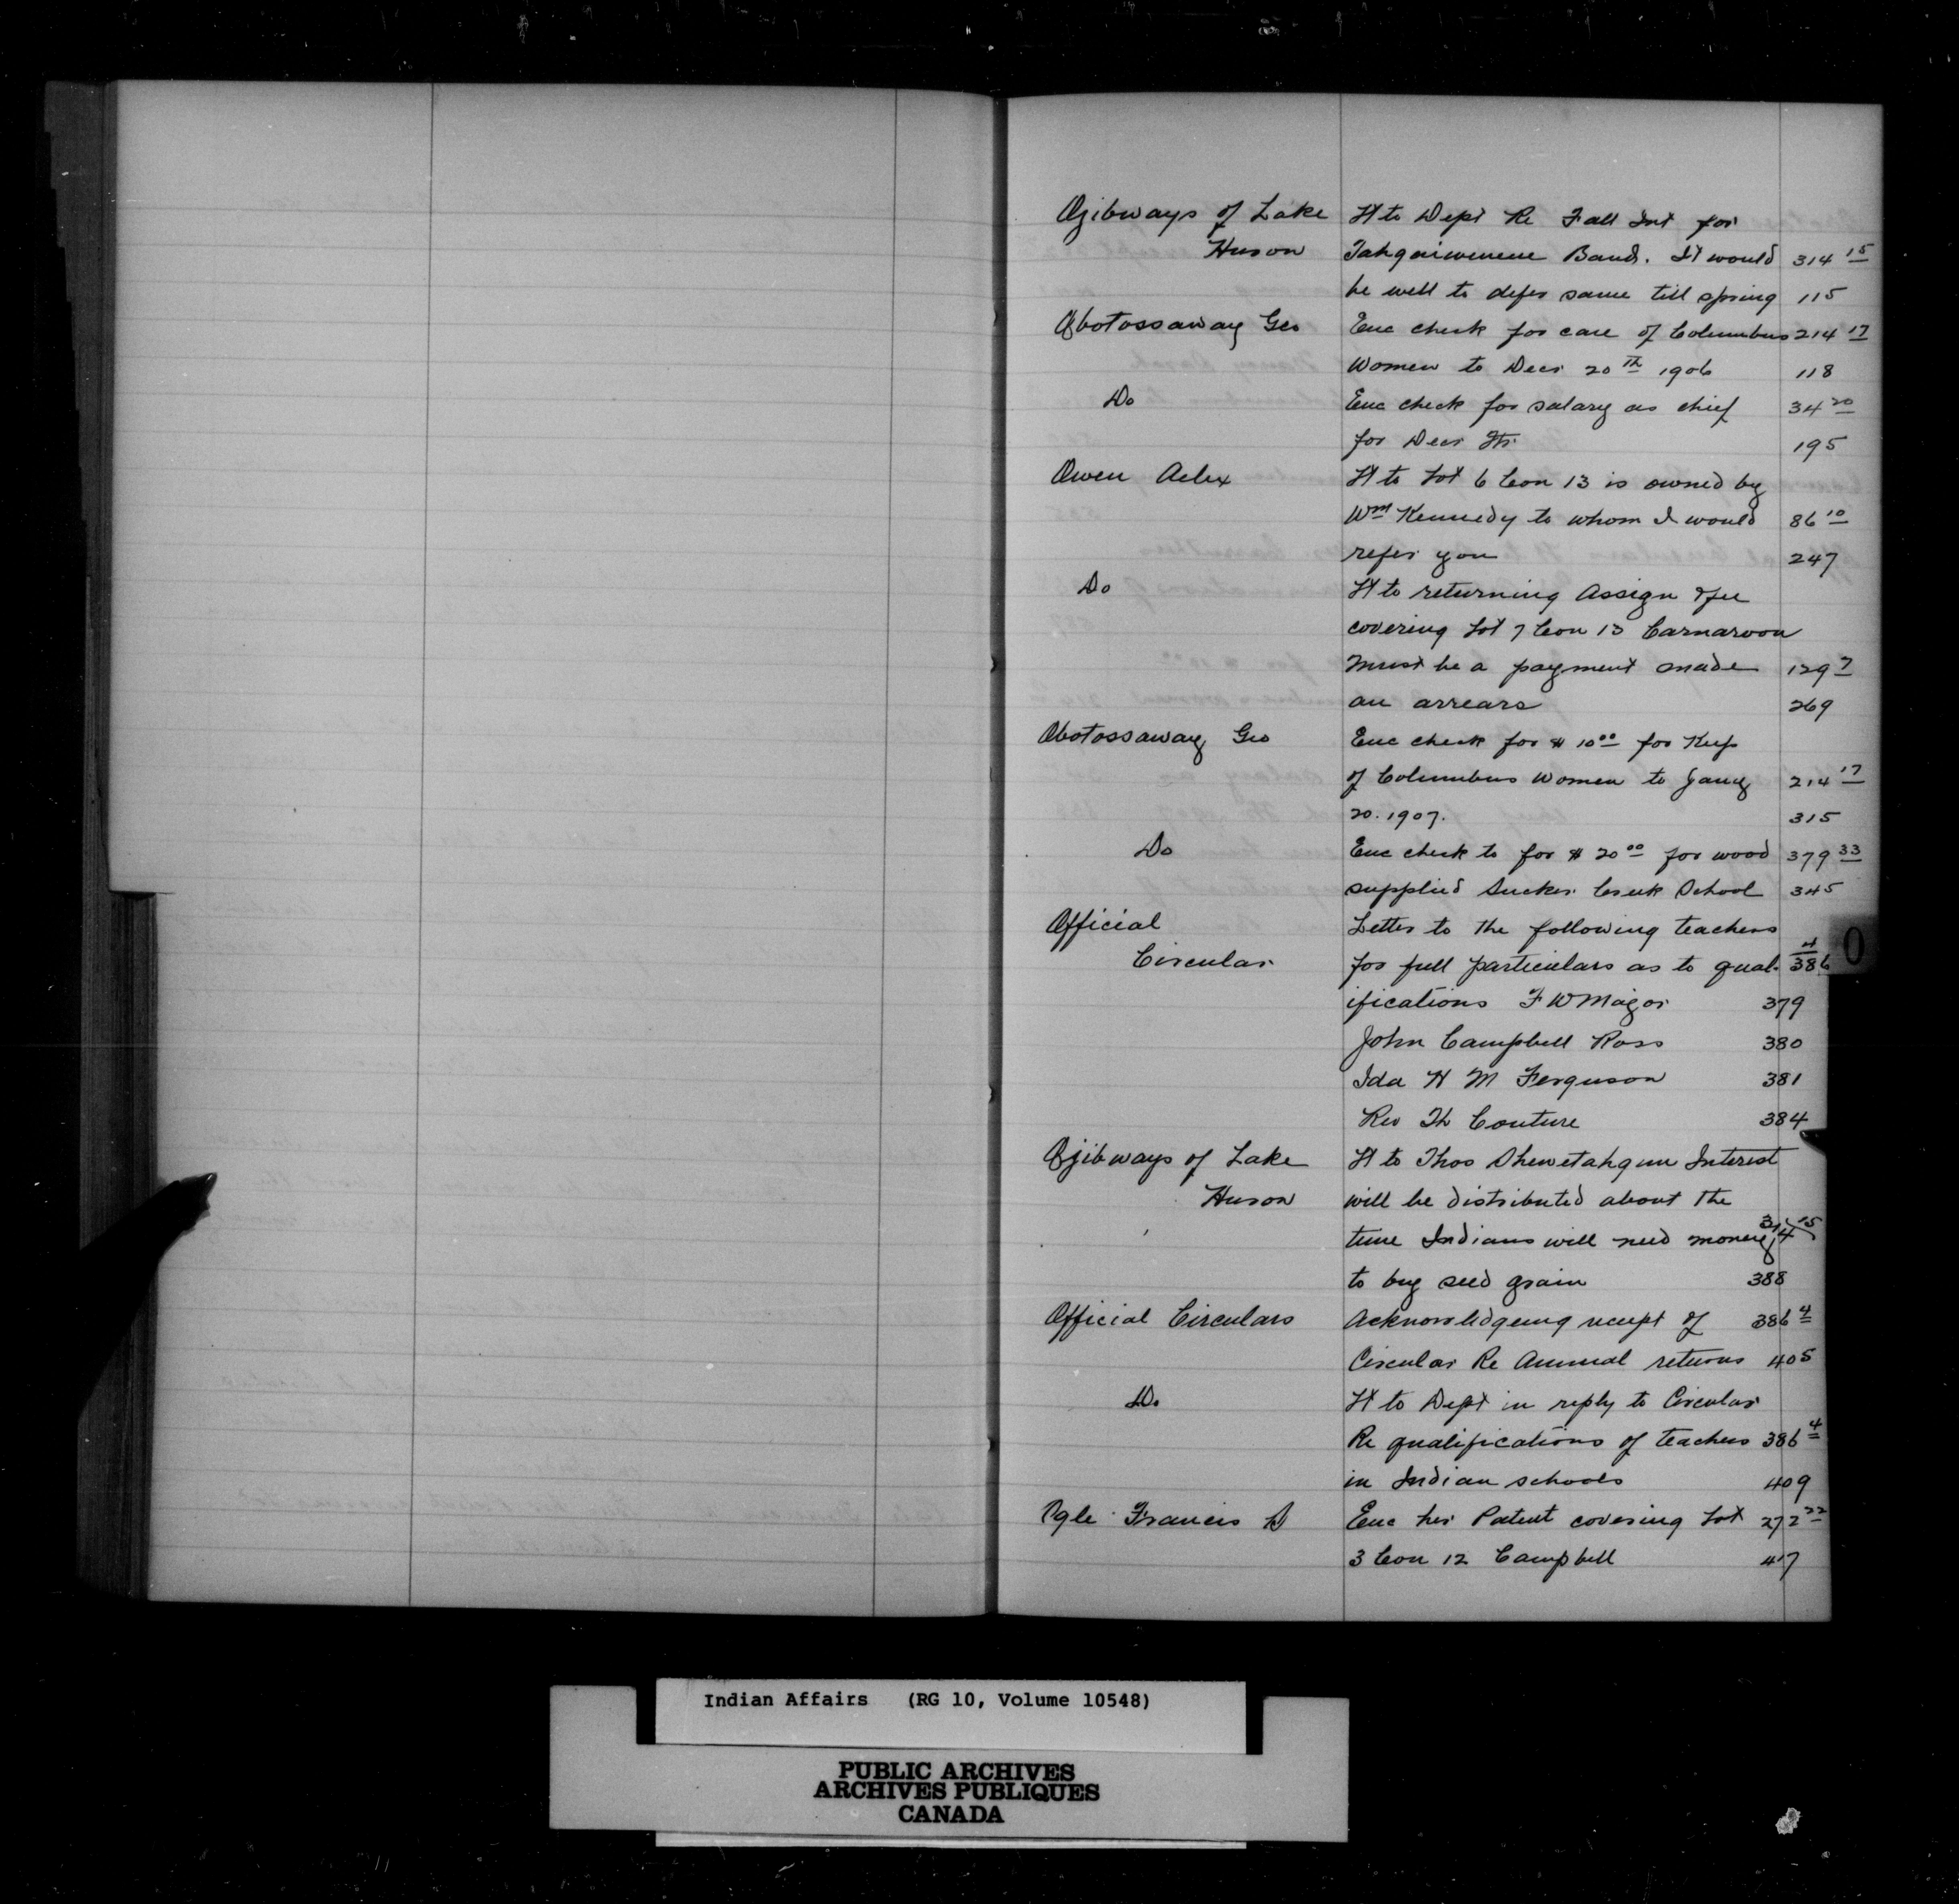 Ojibways of Lake Lt to Dept Re Fall Int for
Huron Tahgaiwenene Band. It would 314 15
be well to defer same till spring 115
Abotossaway Geo Enc check for care of Columbus 214 17
Women to Decr 20th 1906 118
Do Enc check for salary as chief 34 20
for Decr Qtr 195
Owen Aelex Lt to Lot 6 Con 13 is owned by
Wm Kennedy to whom I would 86 10
refer you 247
Do Lt to returning Assign & fee
covering Lot 7 Con 13 Carnarvon
Must be a payment made 129 7
on arrears 269
Obotossaway Geo Enc check for $ 10 00 for Keep
of Columbus Women to Jany 214 17
20. 1907. 315
Do Enc check to for $ 20 00 for wood 379 33
supplied Sucker Creek School 345
Official Letter to the following teachers
Circular for full particulars as to qual- 386 4
ifications F W Major 379
John Campbell Ross 380
Ida H M Ferguson 381
Rev Th Couture 384
Ojibways of Lake Lt to Thos Shewetahgun Interest
Huron will be distributed about the
time Indians will need money 314 15
to buy seed grain 388
Official Circulars Acknowledgeing receipt of 386 4
Circular Re Annual returns 405
Do. Lt to Dept in reply to Circular
Re qualifications of teachers 386 4
in Indian schools 409
Ogle Francis D Enc her Patent covering Lot 272 22
3 Con 12 Campbell 417
O
Indian Affairs (RG 10, Volume 10548)
PUBLIC ARCHIVES
ARCHIVES PUBLIQUES
CANADA